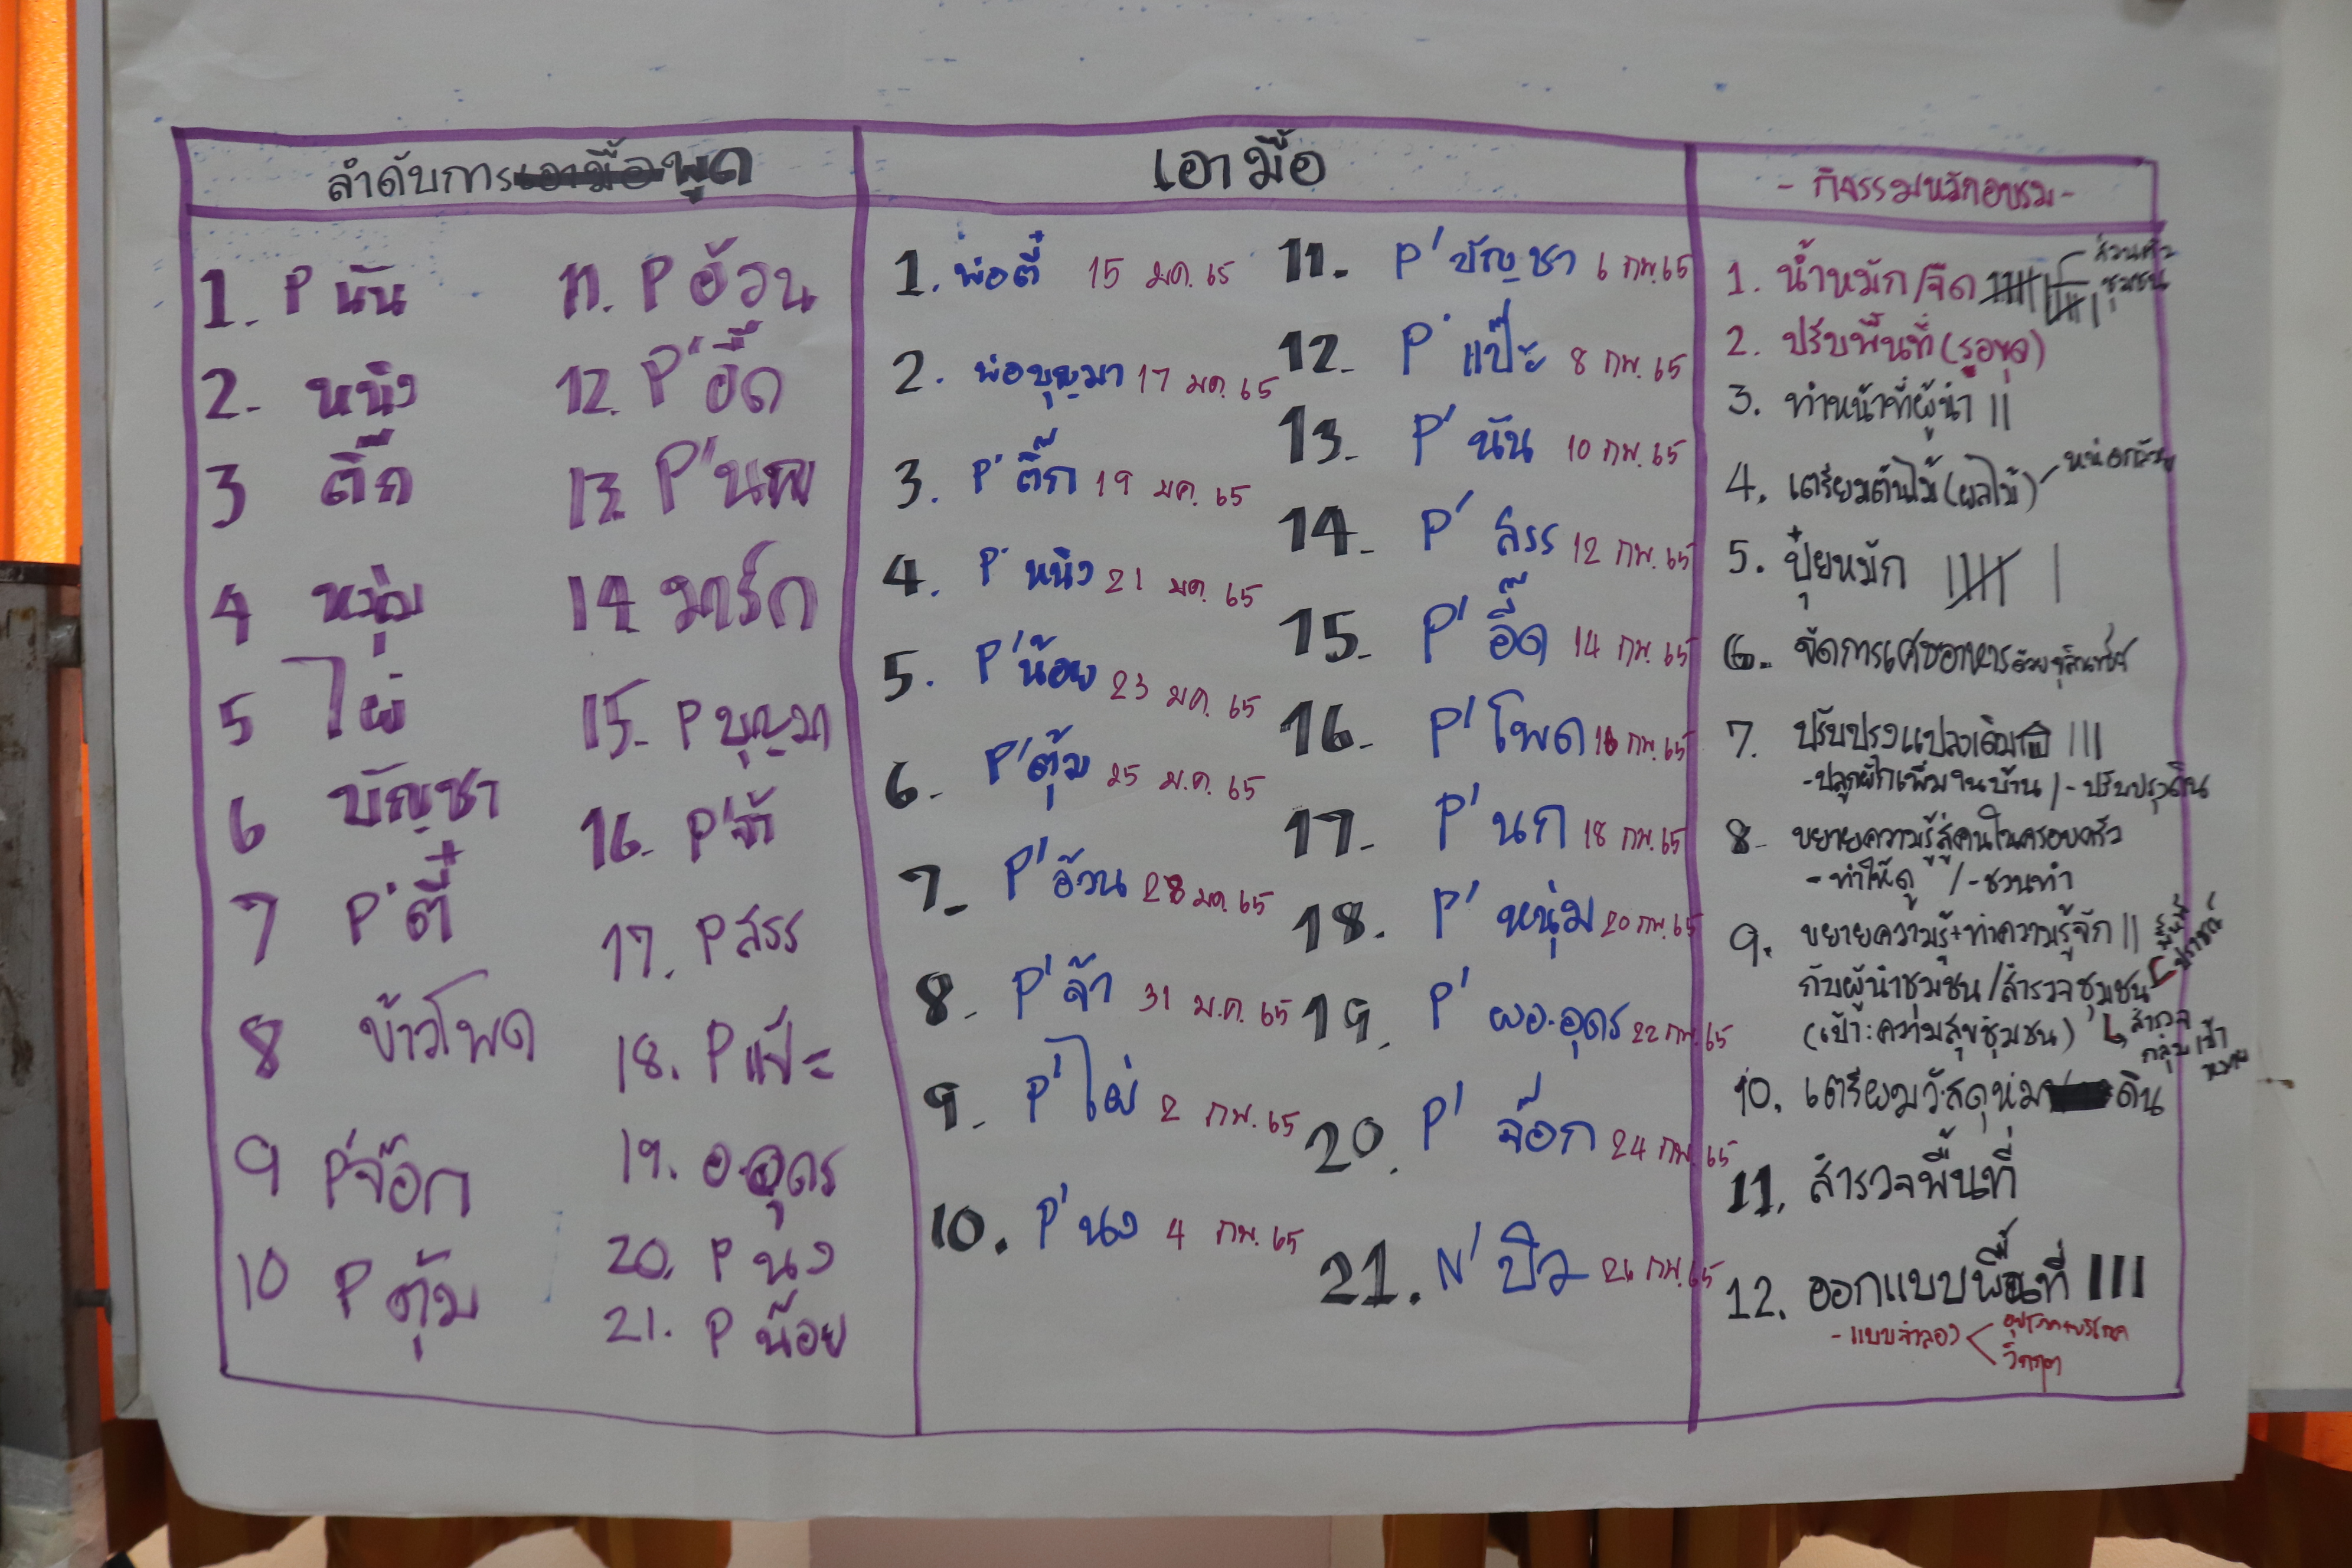 ลำดับการพูด
1. P นัน
2. หนิง
3 ติ๊ก
4 หนุ่ม
5 ไผ่
6 บัญชา
7 P' ตี๋
8 ข้าวโพด
9 P'จ๊อก
10 P ตุ้ม
11. P อ้วน
12. P' อี๊ด
13. P' นก
14 มาร์ก
15. P บุญมา
16. P'จ้า
17. P สรร
18. P แป๊ะ
19. อ.อุดร
20. P นง
21. P น้อย
เอามื้อ
1. พ่อตี๋ 15 มค. 65
2. พ่อบุญมา 17 มค. 65
3. P' ติ๊ก 19 มค. 65
4. P' หนิง 21 มค. 65
5. P' น้อย 23 มค. 65
6. P' ตุ้ม 25 ม.ค. 65
7. P' อ้วน 28 มค. 65
8. P' จ้า 31 ม.ค. 65
9. P' ไผ่ 2 กพ. 65
10. P' นง 4 กพ. 65
11. P' บัญชา 6 กพ. 65
12. P' แป๊ะ 8 กพ. 65
13. P' นัน 10 กพ. 65
14. P' สรร 12 กพ. 65
15. P' อี๊ด 14 กพ. 65
16. P' โพด 16 กพ. 65
17. P' นก 18 กพ. 65
18. P' หนุ่ม 20 กพ. 65
19. P' ผอ.อุดร 22 กพ. 65
20. P' จ๊อก 24 กพ. 65
21. N' บิว 26 กพ. 65
- กิจรรมหลักอบรม -
1. น้ำหมัก/จืด
ส่วนตัว
ชุมชน
2. ปรับพื้นที่ (รอขุด)
3. ทำหน้าที่ผู้นำ ||
4. เตรียมต้นไม้ (ผลไม้) หน่อกล้วย
5. ปุ๋ยหมัก
6. จัดการเศษอาหารด้วยจุลินทรีย์
7. ปรับปรุงแปลงเดิม |||
-ปลูกผักเพิ่มในบ้าน /- ปรับปรุงดิน
8. ขยายความรู้สู่คนในครอบครัว
- ทำให้ดู /- ชวนทำ
9. ขยายความรู้+ทำความรู้จัก ||
กับผู้นำชุมชน /สำรวจชุมชน
(เป้า : ความสุขชุมชน)
สำรวจ
กลุ่มเป้า
หมาย
10. เตรียมวัสดุห่มดิน
11. สำรวจพื้นที่
12. ออกแบบพื้นที่ |||
- แบบจำลอง
วิกฤต